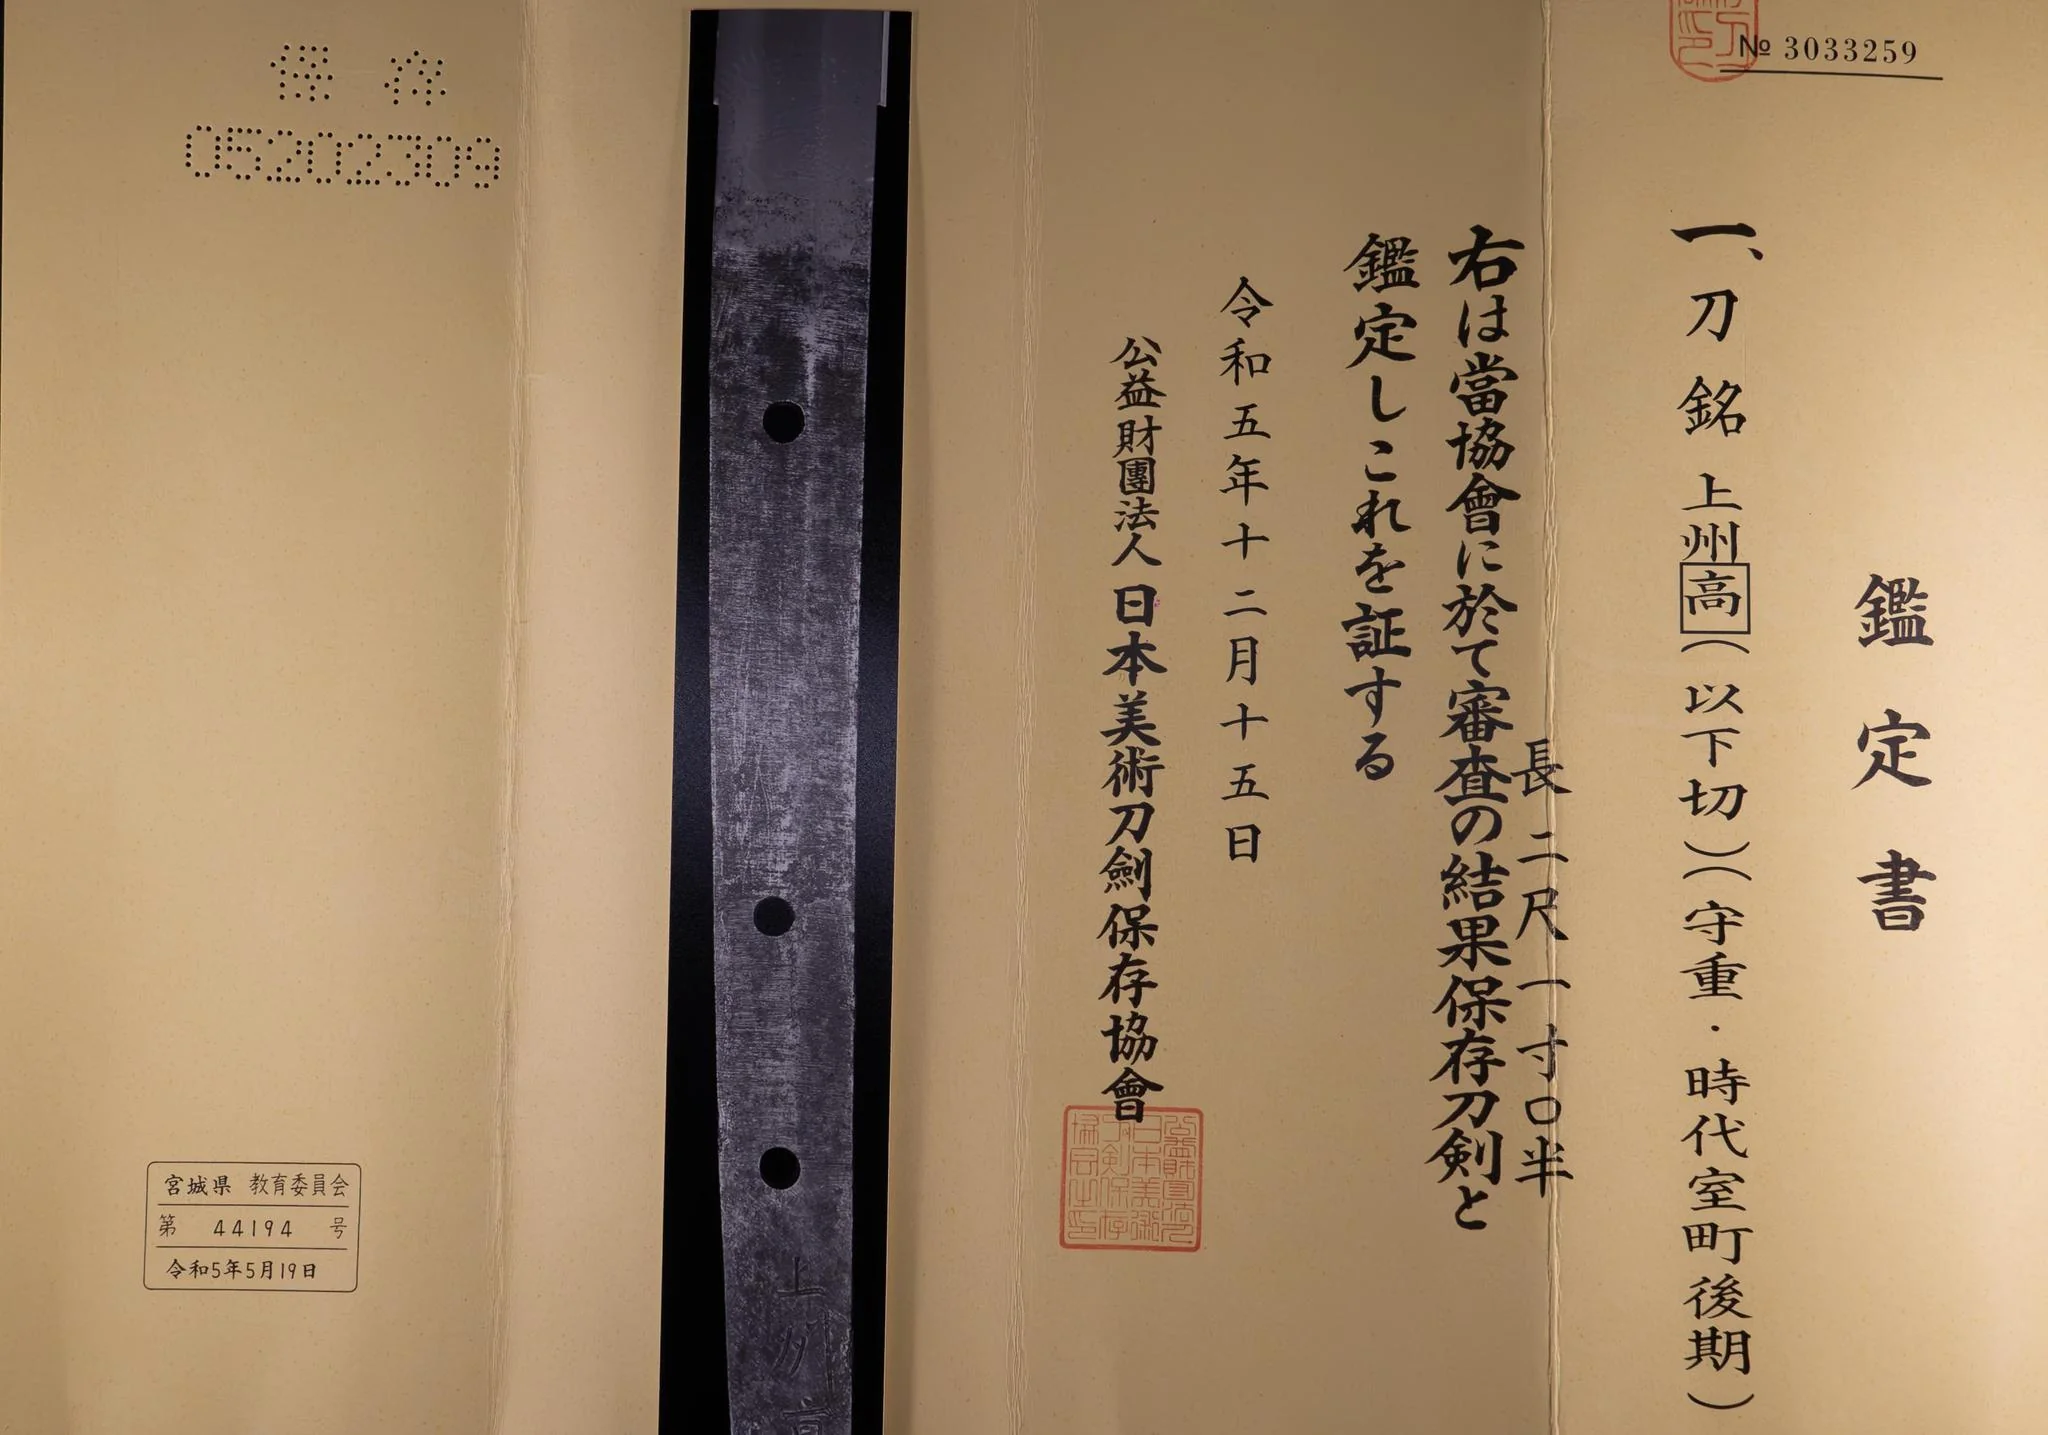 № 3033259
鑑定書
一、刀 銘 上州高(以下切)(守重・時代室町後期)
長二尺一寸〇半
右は當協會に於て審査の結果保存刀剣と
鑑定しこれを証する
令和五年十二月十五日
公益財團法人 日本美術刀劍保存協會
上州高
保存
05202309
宮城県 教育委員会
第 44194 号
令和5年5月19日